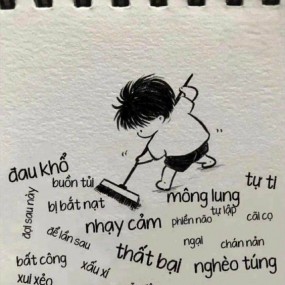 đau khổ
buồn tủi
tự ti
mông lung
đợi sau này
bị bắt nạt
tự lập
cãi cọ
nhạy cảm
phiền não
để lần sau
ngại
chán nản
thất bại
bất công
xấu xí
nghèo túng
xui xẻo